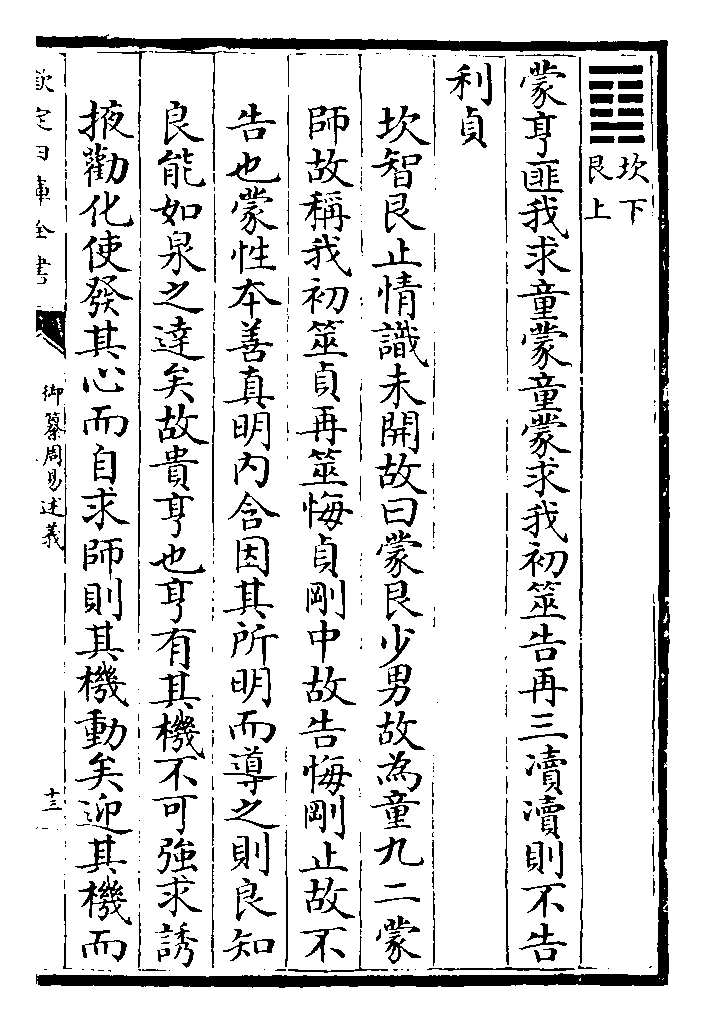 坎下
艮上
蒙亨匪我求童蒙童蒙求我初筮告再三瀆瀆則不告
利貞
坎智艮止情識未開故曰蒙艮少男故為童九二蒙
師故稱我初筮貞再筮悔貞剛中故告悔剛止故不
告也蒙性本善真明內含因其所明而導之則良知
良能如泉之達矣故貴亨也亨有其機不可強求誘
掖勸化使發其心而自求師則其機動矣迎其機而
欽定四庫全書
御纂周易述義
十三